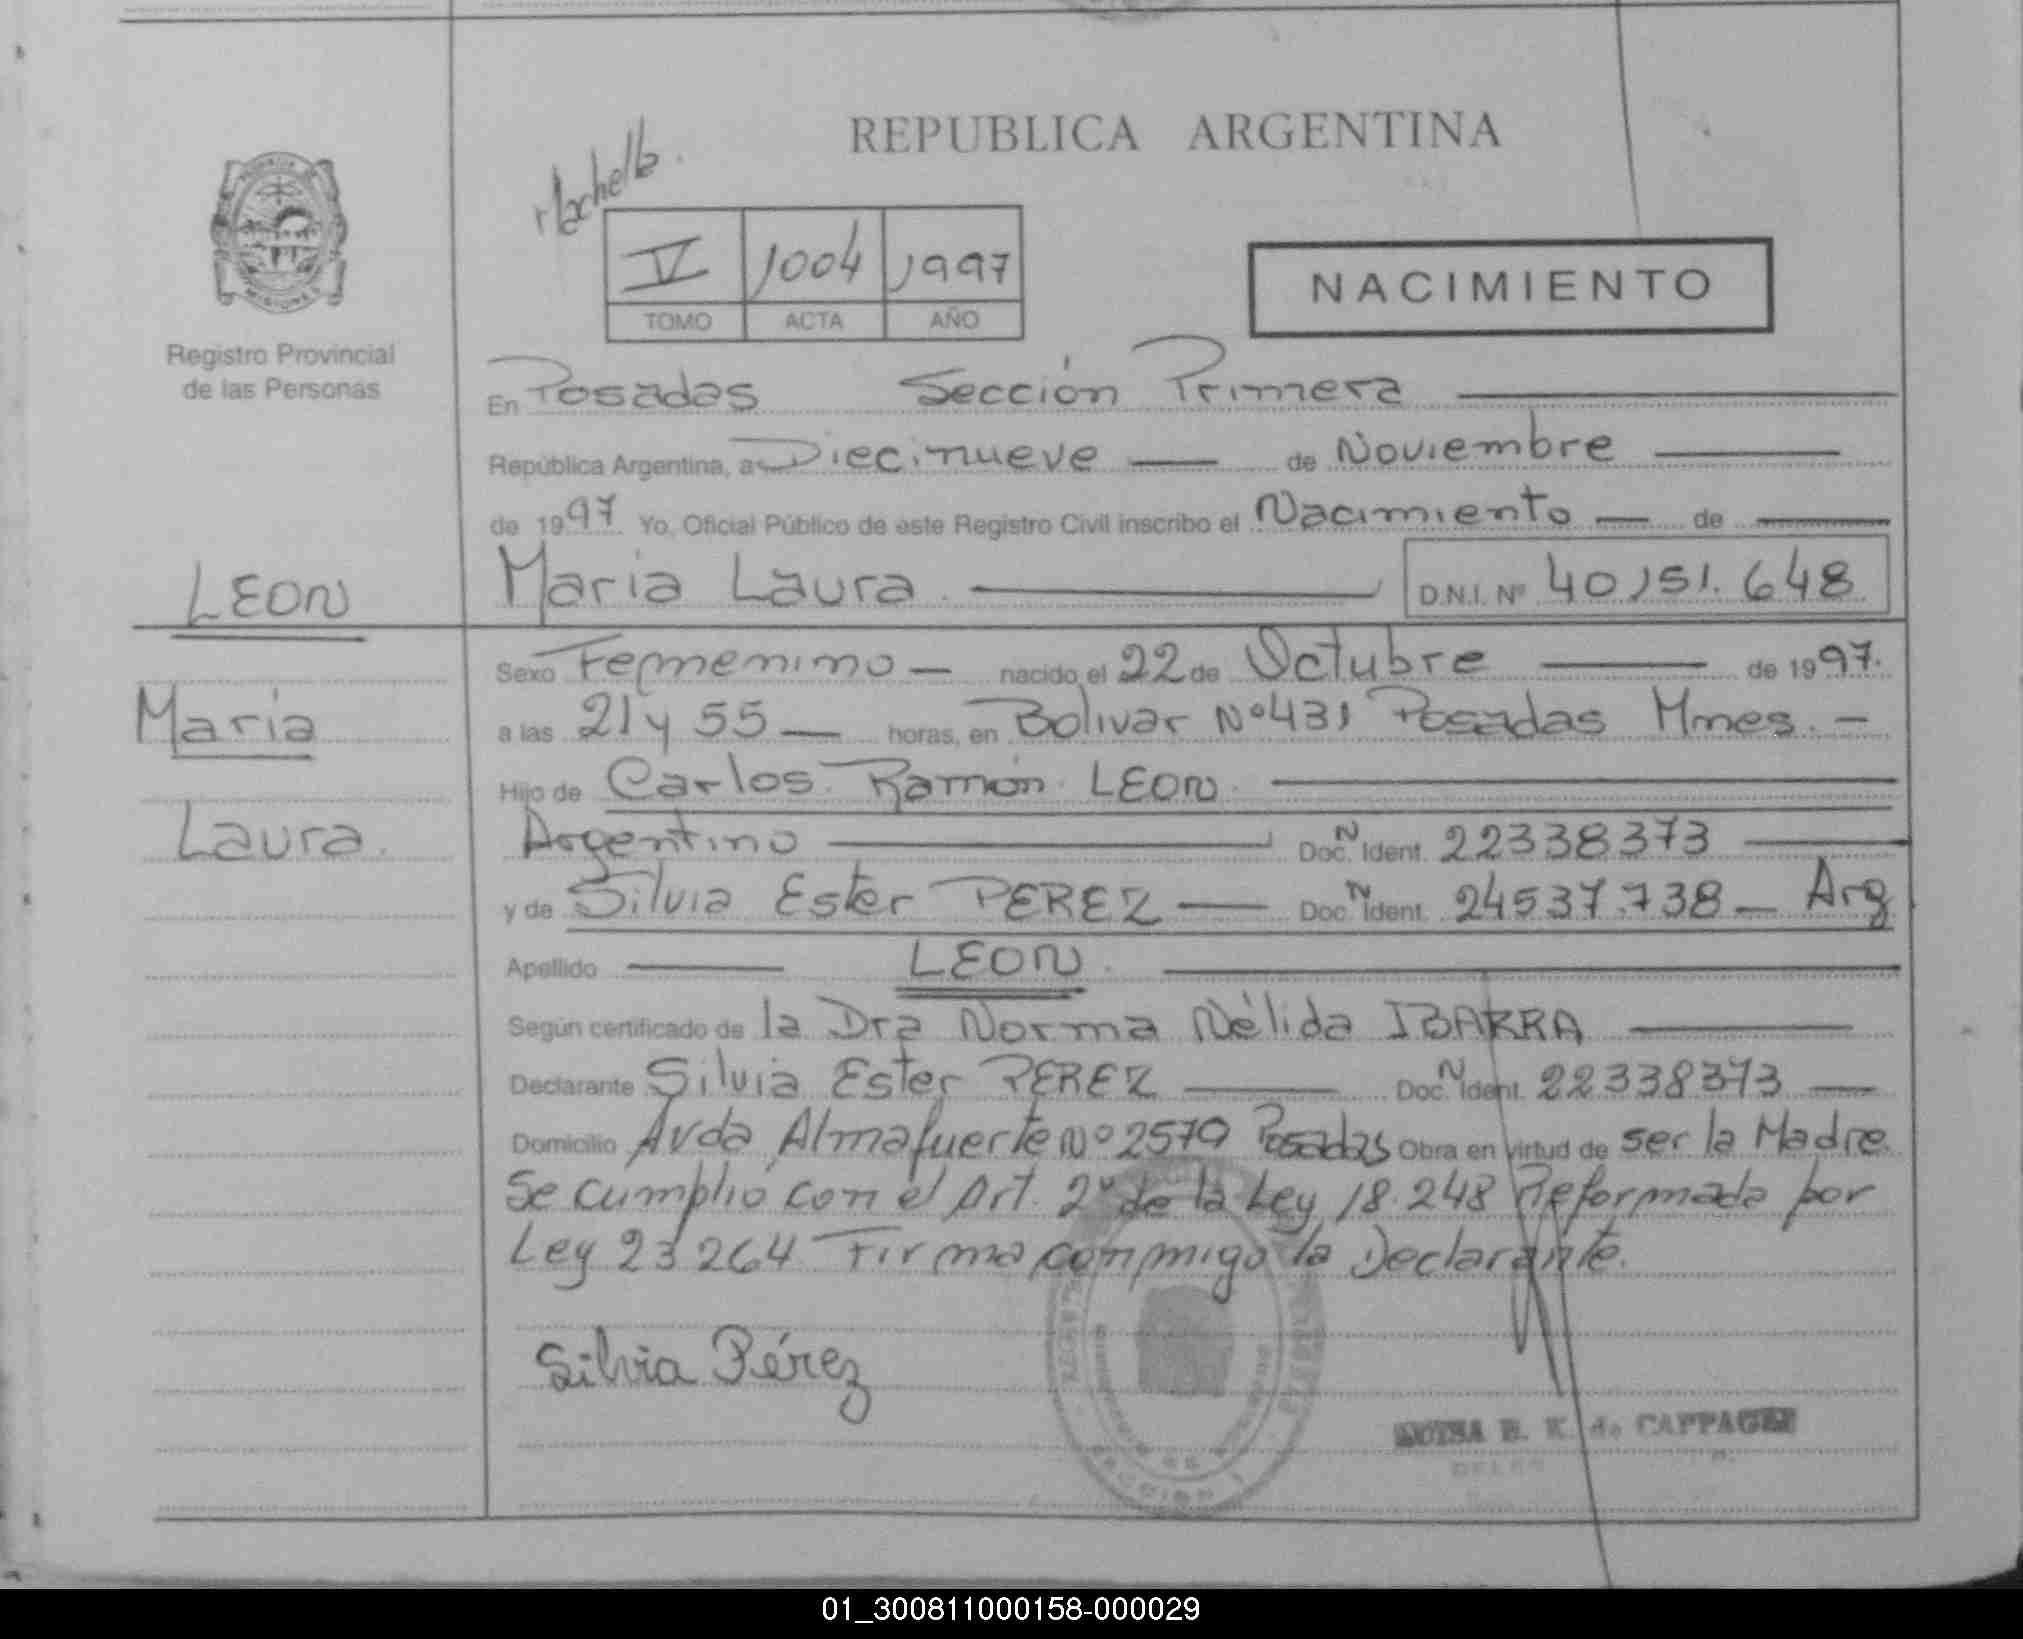 REPUBLICA ARGENTINA
V 1004 1997
TOMO ACTA AÑO
NACIMIENTO
Registro Provincial
de las Personas
En Posadas Sección Primera
República Argentina, a Diecinueve de Noviembre
de 1997 Yo, Oficial Público de este Registro Civil inscribo el Nacimiento de
LEON
Maria Laura D.N.I. Nº 40151.648
Sexo Femenino nacido el 22 de Octubre de 1997.
Maria
a las 21 y 55 horas, en Bolivar Nº 431 Posadas Mnes.
Hijo de Carlos Ramón LEON
Laura
Argentino Doc. N Ident. 22338373
y de Silvia Ester PEREZ Doc. N Ident. 24537.738 Arg
Apellido LEON
Según certificado de la Dra Norma Nélida IBARRA
Declarante Silvia Ester PEREZ Doc. N Ident. 22338373
Domicilio Avda Almafuerte Nº 2579 Posadas Obra en virtud de ser la Madre
Se cumplió con el Art. 2º de la Ley 18.248 Reformada por
Ley 23264 Firma conmigo la Declarante.
Silvia Pérez
B. K. de
01_300811000158-000029